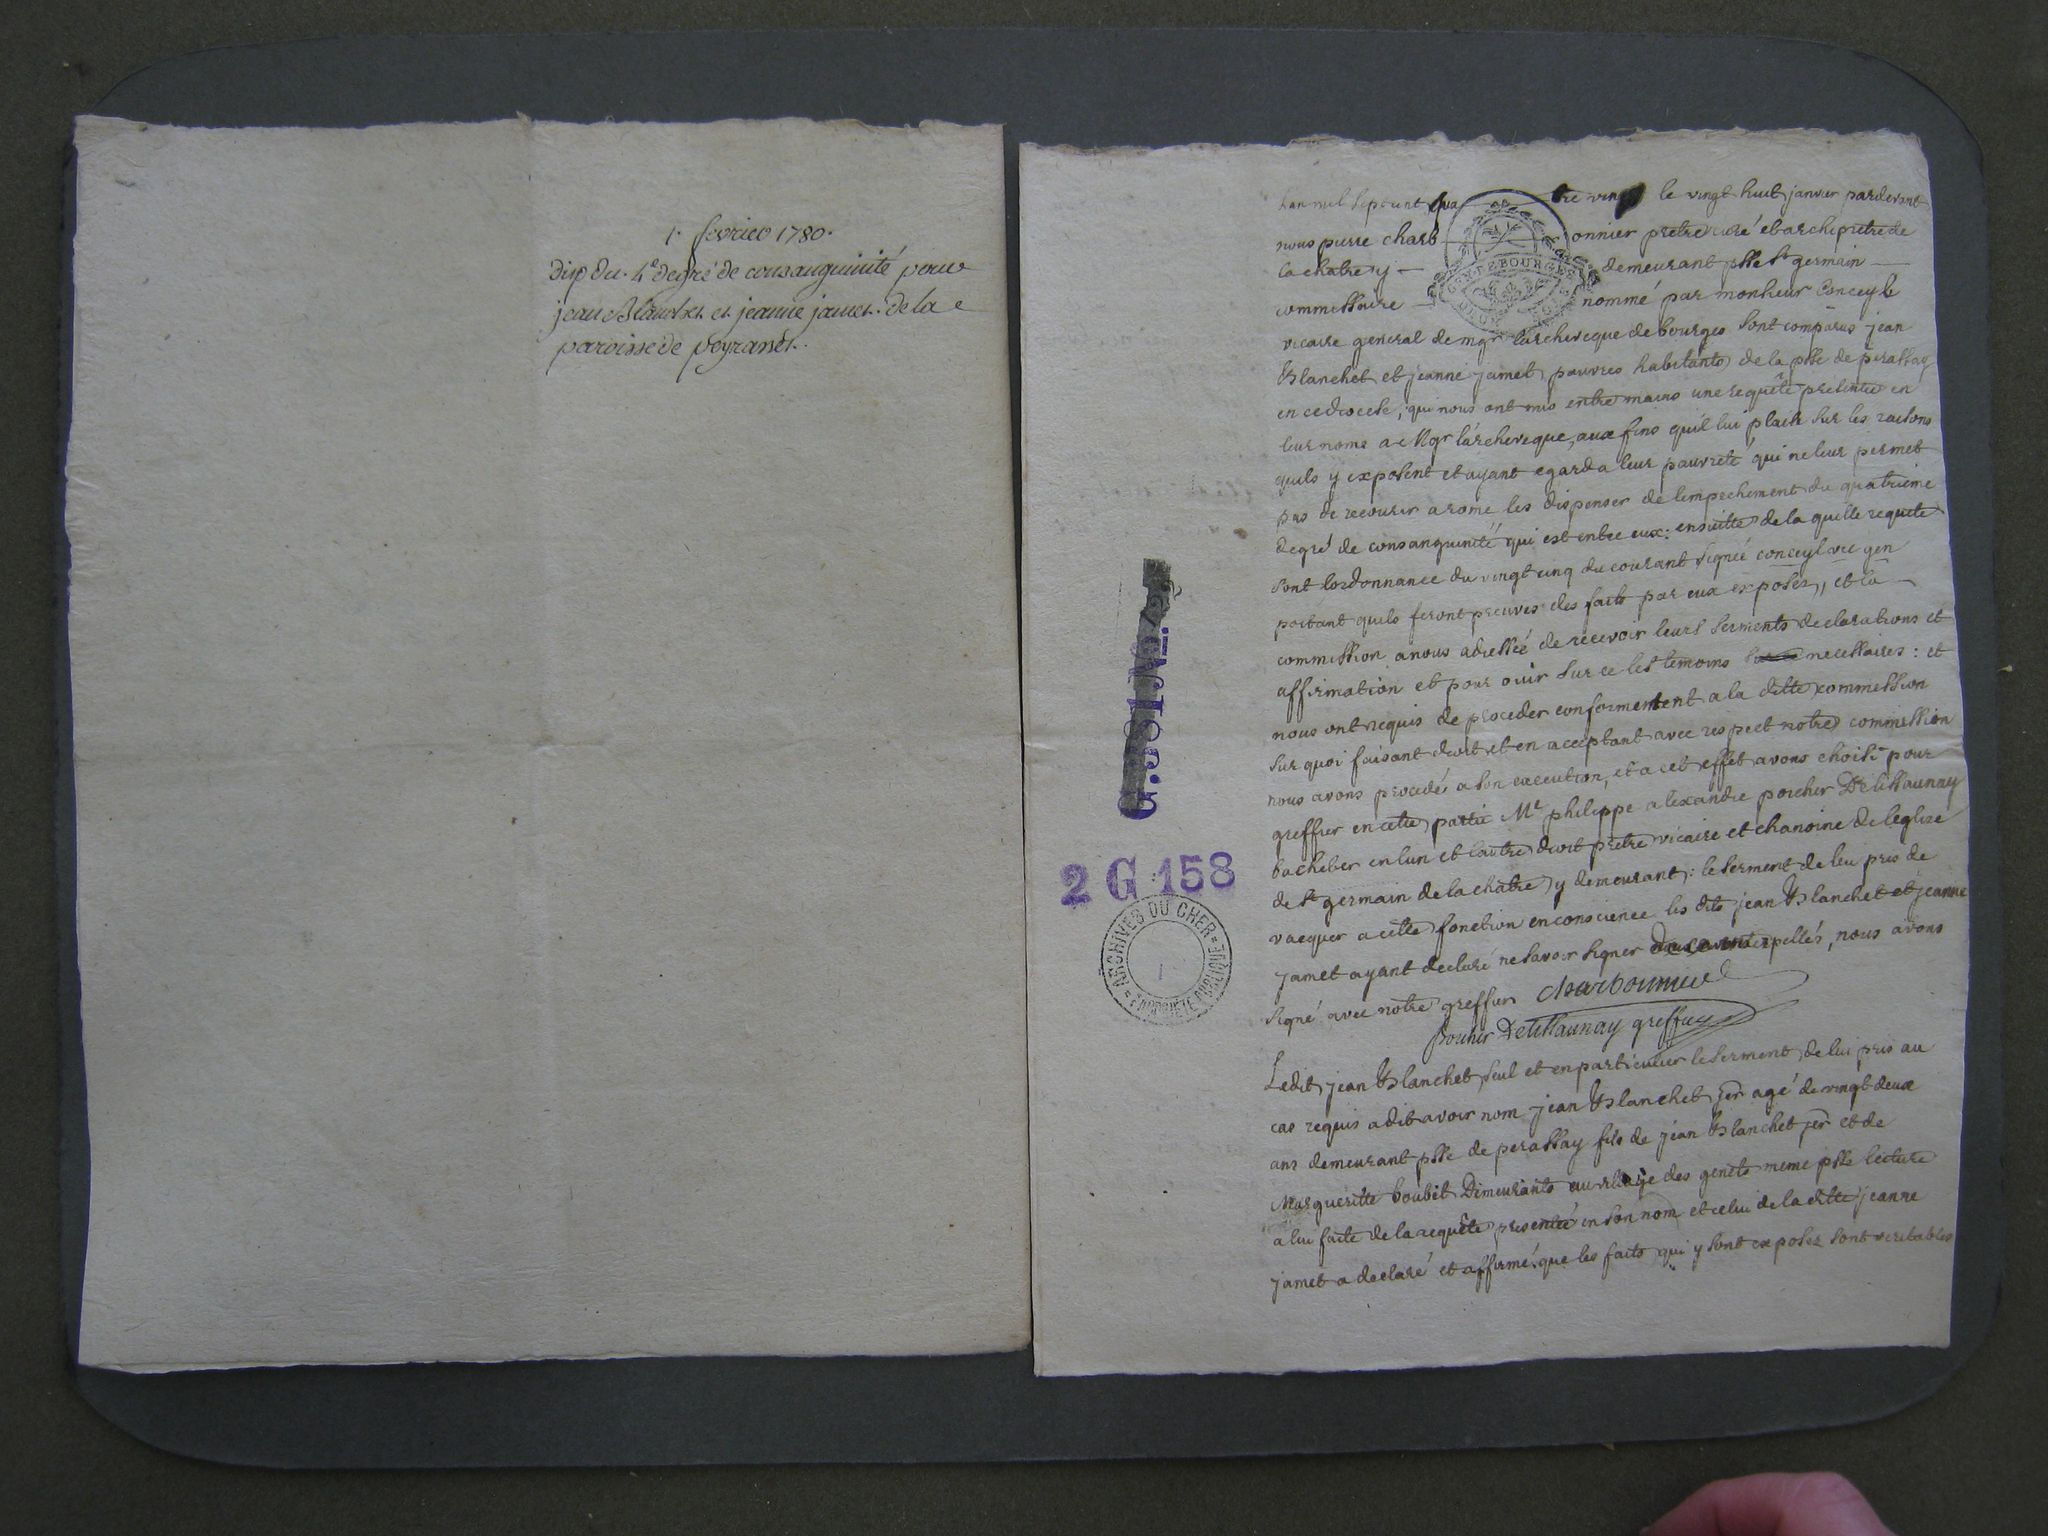 1. fevrier 1780.
disp du. 4e degré de consanguinité pour
jean Blanchet et jeanne jamet. de la
paroisse de peyrasset.
Lan mil sept cent qua tre vingt le vingt huit janvier pardevant
nous pierre charb onnier pretre curé et archipretre de
la chatre y demeurant psse st germain
commissaire nommé par monsieur Conceyl
GEN. DE BOURGES
vicaire general de mgr larcheveque de bourges sont comparus jean
Blanchet et jeanne jamet pauvres habitants de la psse de perassay
en ce diocese, qui nous ont mis entre mains une requête présentée en
leur noms a Mgr larcheveque, aux fins quil lui plaise sur les raisons
quils y exposent et ayant egard a leur pauvreté qui ne leur permet
pas de recourir a rome les dispenser de lempechement du quatrieme
degré de consanguinité qui est entre eux: ensuitte de la quelle requete
sont lordonnance du vingt cinq du courant signée conceyl vic gen
portant quils feront preuves des faits par eux exposez, et la
commission a nous adressée de recevoir leurs serments declarations et
affirmation et pour ouir sur ce les temoins necessaires: et
nous ont requis de proceder conformement a la ditte commission
sur quoi faisant droit et en acceptant avec respect notre commission
nous avons procedé a son execution, et a cet effet avons choisi pour
greffier en cette partie Mr philippe alexandre porcher Delissaunay
bachelier en lun et lautre droit pretre vicaire et chanoine de leglise
de st germain de la châtre y demeurant: le serment de lui pris de
vacquer a cette fonction en conscience les dits jean Blanchet et jeanne
jamet ayant declaré ne savoir signer de ce interpellés, nous avons
signé avec notre greffier charbonnier
porcher Delissaunay greffier
Ledit jean Blanchet seul et en particulier le serment de lui pris au
cas requis a dit avoir nom jean Blanchet jer agé de vingt deux
ans demeurant psse de perassay fils de jean Blanchet jer et de
Margueritte boubet Demeurants au village des genets meme psse lecture
a lui faite de la requête presentée en son nom et celui de la ditte jeanne
jamet a declaré et affirmé que les faits qui y sont exposez sont veritables
G. 381 No.
2 G 158
ARCHIVES DU CHER